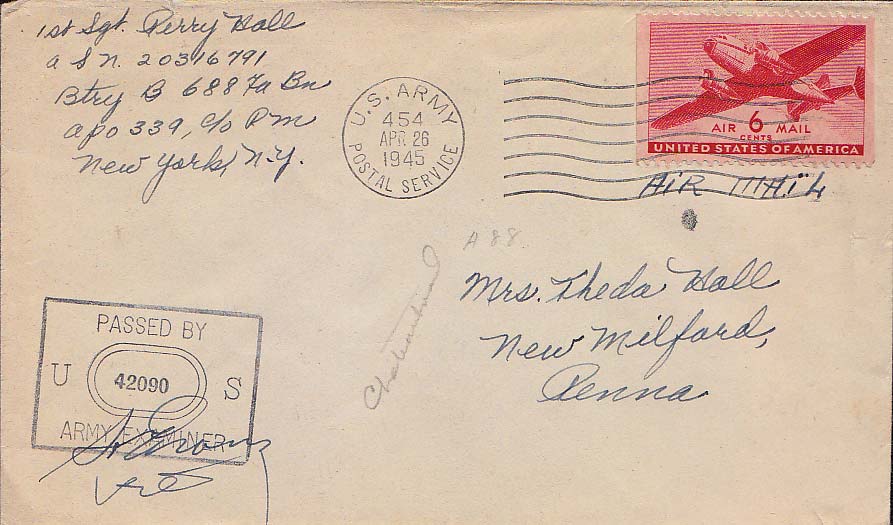 1st Sgt. Perry Hall
a S N. 20316791
Btry B 688 Fa Bn
apo 339, c/o P m
New York, N.Y.
U.S. ARMY
454
APR 26
1945
POSTAL SERVICE
AIR 6 MAIL
CENTS
UNITED STATES OF AMERICA
AiR MAiL
A 88
Mrs. Theda Hall
New Milford,
Penna
PASSED BY
U 42090 S
ARMY EXAMINER